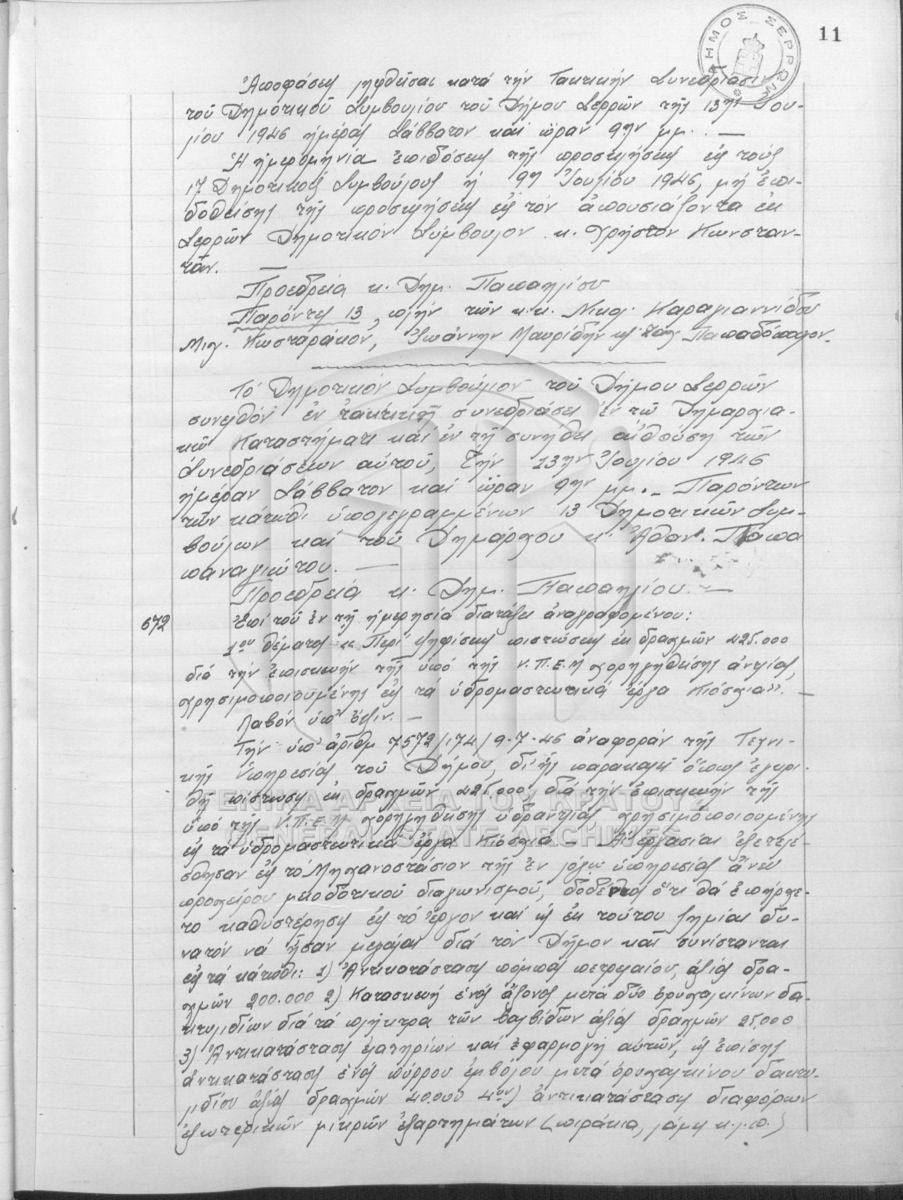 11
ΔΗΜΟΣ ΣΕΡΡΩΝ
Ἀποφάσεις ληφθεῖσαι κατά τήν Τακτικήν Συνεδρίασιν
τοῦ Δημοτικοῦ Συμβουλίου τοῦ Δήμου Σερρῶν τῆς 13ης Ἰου-
λίου 1946 ἡμέραν Σάββατον καί ὥραν 9ην μμ. —
Ἡ ἡμερομηνία ἐπιδόσεως τῆς προσκλήσεως εἰς τούς
17 Δημοτικούς Συμβούλους ἡ 9η Ἰουλίου 1946, μή ἐπι-
δοθείσης τῆς προσκλήσεως εἰς τόν ἀπουσιάζοντα ἐκ
Σερρῶν Δημοτικόν Σύμβουλον κ. Χρῆστον Κωνσταν-
τᾶν.
Προεδρεία κ. Δημ. Παπαηλίου
Παρόντες 13, πλήν τῶν κ.κ. Νικ. Καραγιαννίδου
Μιχ. Κωσταράκον, Ἰωάννην Μαυρίδην Παπαδόπουλον.
Τό Δημοτικόν Συμβούλιον τοῦ Δήμου Σερρῶν
συνελθόν ἐν τακτικῇ συνεδριάσει ἐν τῷ Δημαρχια-
κῷ Καταστήματι καί ἐν τῇ συνήθει αἰθούσῃ τῶν
Συνεδριάσεων αὐτοῦ, τήν 13ην Ἰουλίου 1946
ἡμέραν Σάββατον καί ὥραν 9ην μμ. — Παρόντων
τῶν κάτωθι ὑπογεγραμμένων 13 Δημοτικῶν Συμ-
βούλων καί τοῦ Δημάρχου κ. Ἀθαν. Παπα
παναγιώτου. —
Προεδρεία κ. Δημ. Παπαηλίου. —
672 Ἐπί τοῦ ἐν τῇ ἡμερησίᾳ διατάξει ἀναγραφομένου:
1ου θέματος "Περί ψηφίσεως πιστώσεως ἐκ δραχμῶν 425.000
διά τήν ἐπισκευήν τῆς ὑπό τῆς Υ.Π.Ε.Μ χορηγηθείσης ἀντλίας,
χρησιμοποιουμένης εἰς τά ὑδρομαστευτικά ἔργα Κιόσκια". —
Λαβόν ὑπ' ὄψιν. —
Τήν ὑπ' ἀριθμ 7572/174/9-7-46 ἀναφοράν τῆς Τεχνι-
κῆς Ὑπηρεσίας τοῦ Δήμου, δι' ἧς παρακαλεῖ ὅπως ἐγκρι-
θῇ πίστωσις ἐκ δραχμῶν 425.000 διά τήν ἐπισκευήν τῆς
ὑπό τῆς Υ.Π.Ε.Μ χορηγηθείσης ὑδραντλίας χρησιμοποιουμένης
εἰς τά ὑδρομαστευτικά ἔργα Κιόσκια — Αἱ ἐργασίαι ἐξετελέ-
σθησαν εἰς τό Μηχανοστάσιον τῆς ἐν λόγῳ ὑπηρεσίας ἄνευ
προχείρου μειοδοτικοῦ διαγωνισμοῦ, δοθέντος ὅτι θά ἐπήρχε-
το καθυστέρησις εἰς τό ἔργον καί αἱ ἐκ τούτου ζημίαι δυ-
νατόν νά ἦσαν μεγάλαι διά τόν Δῆμον καί συνίστανται
εἰς τά κάτωθι: 1) Ἀντικατάστασις πόμπας πετρελαίου, ἀξίας δρα-
χμῶν 200.000 2) Κατασκευή ἑνός ἄξονος μετά δύο ὀρυχαλκίνων δα-
κτυλιδίων διά τά πλῆκτρα τῶν βαλβίδων ἀξίας δραχμῶν 25.000
3) Ἀντικατάστασις ἐλατηρίων καί ἐφαρμογή αὐτῶν, ὡς ἐπίσης
ἀντικατάστασις ἑνός πύρρου ἐμβόλου μετά ὀρυχαλκίνου δακτυ-
λιδίου ἀξίας δραχμῶν 40.000 4ον) ἀντικατάστασις διαφόρων
ἐξωτερικῶν μικρῶν ἐξαρτημάτων (πειράκια, λάμες κ.λ.π.)
ΓΕΝΙΚΑ ΑΡΧΕΙΑ ΤΟΥ ΚΡΑΤΟΥΣ
GENERAL STATE ARCHIVES